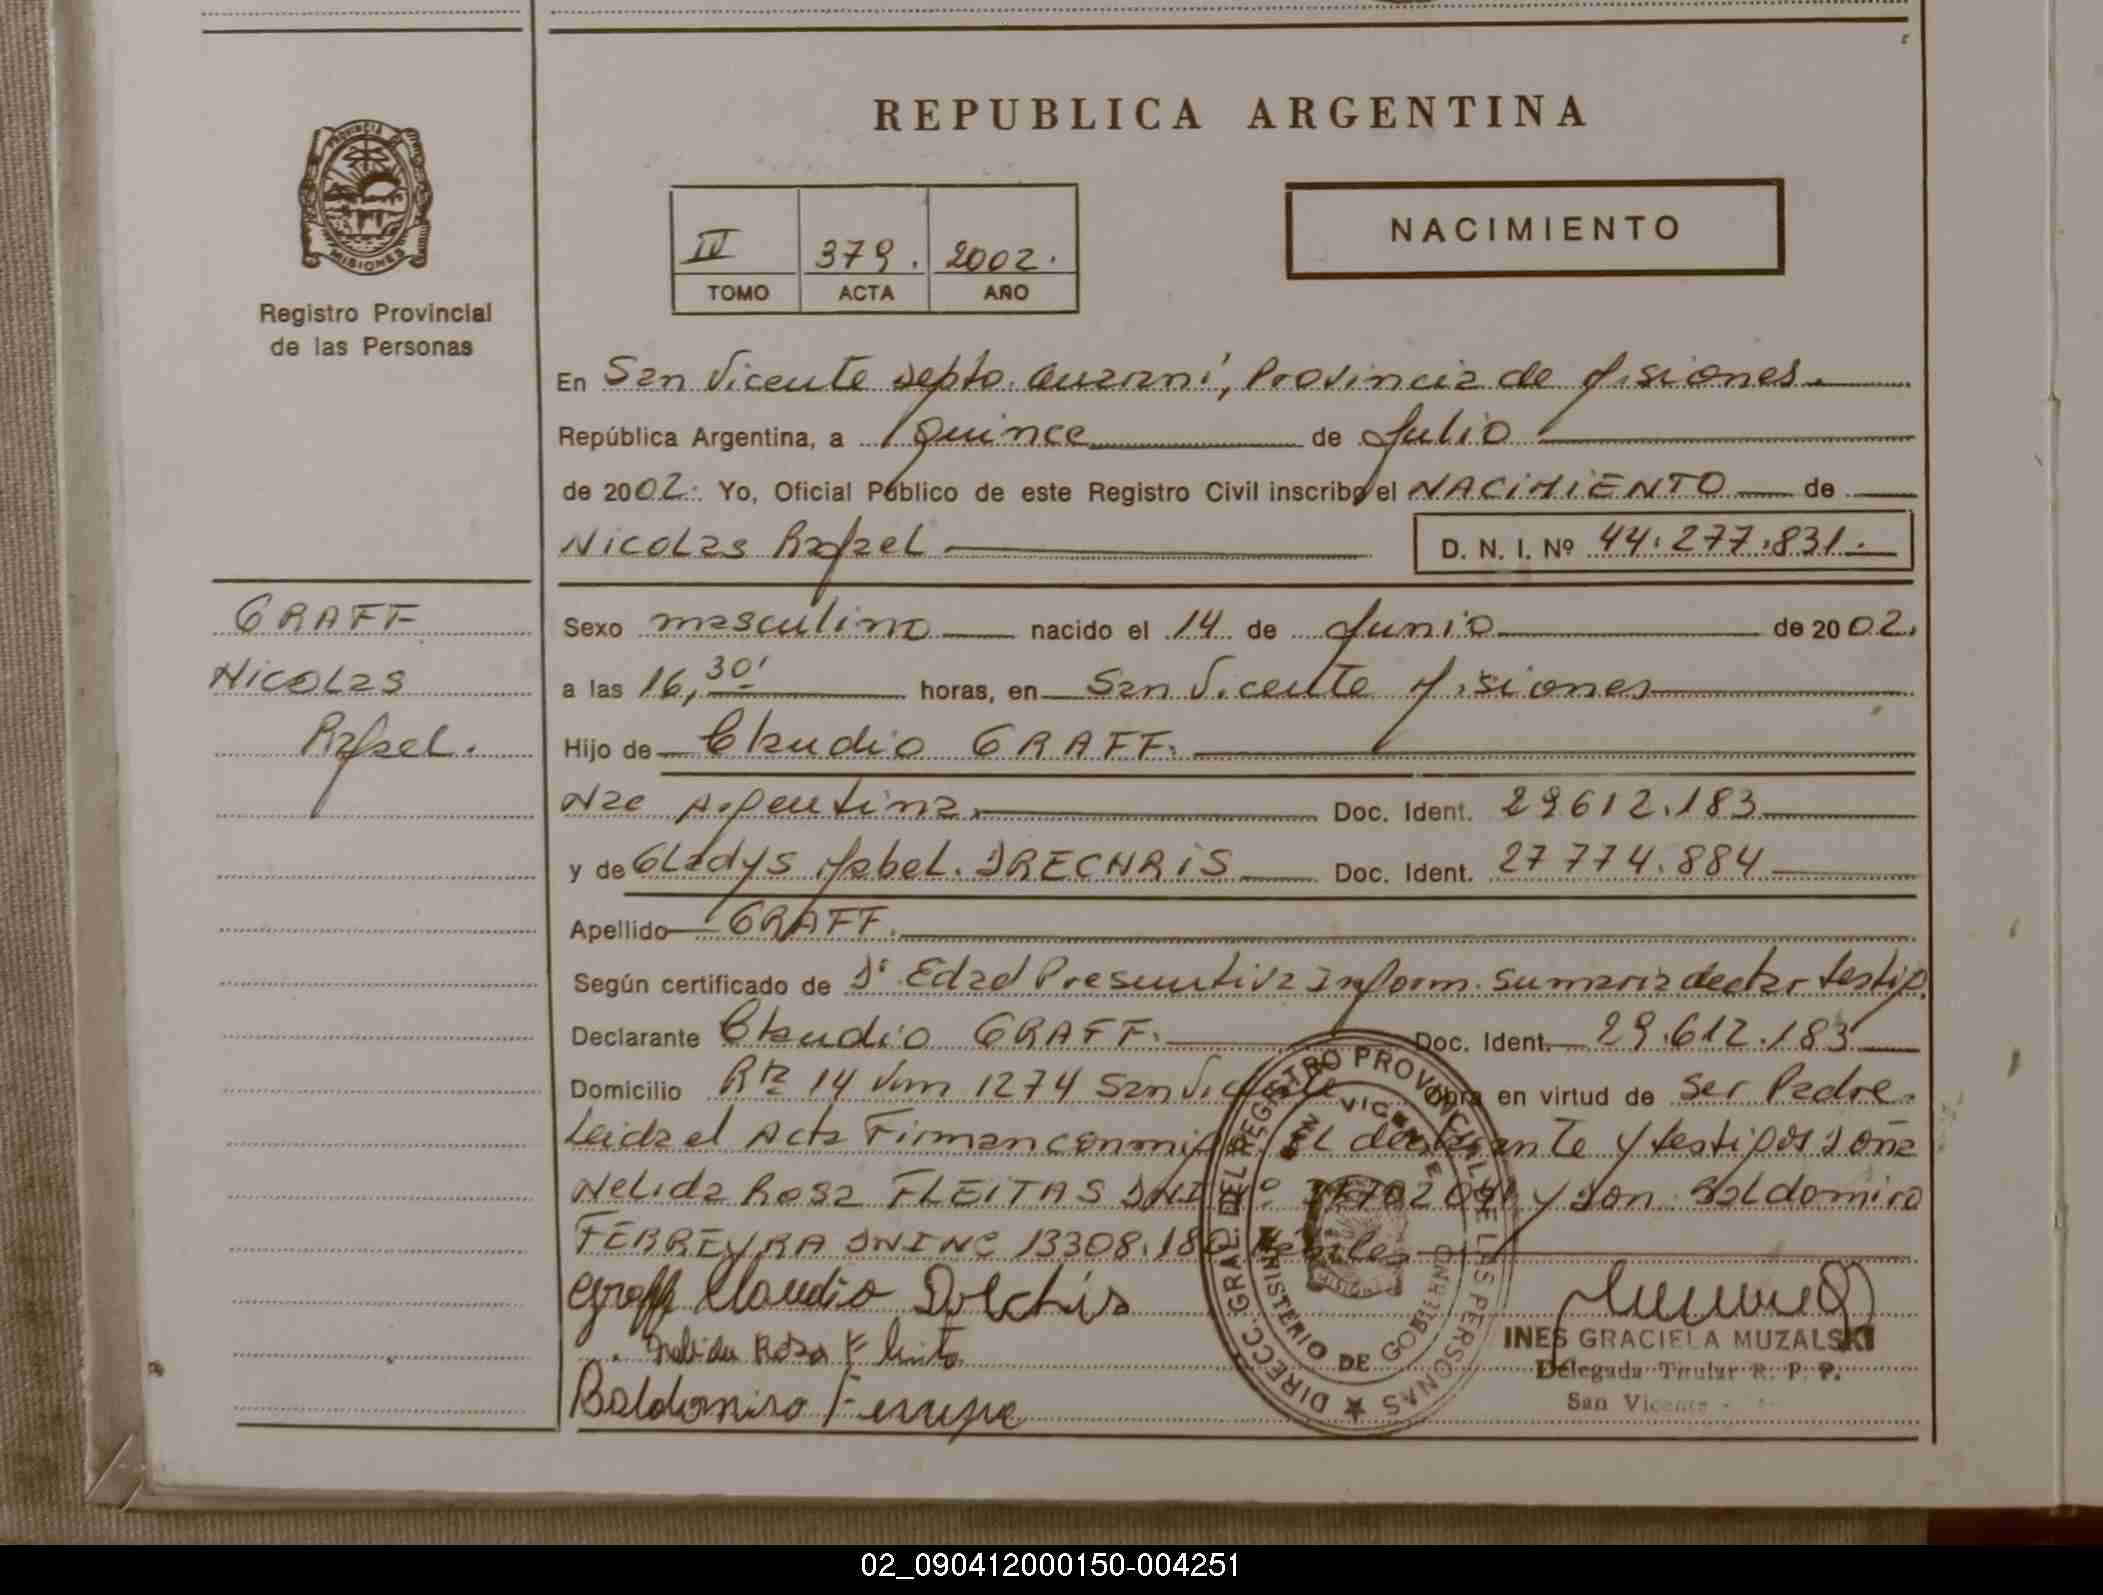 REPUBLICA ARGENTINA
PROVINCIA
MISIONES
Registro Provincial
de las Personas
IV 379. 2002.
TOMO ACTA AÑO
NACIMIENTO
En San Vicente Depto. Guaraní, Provincia de Misiones.
República Argentina, a Quince de Julio
de 2002. Yo, Oficial Público de este Registro Civil inscribo el NACIMIENTO de
Nicolas Rafael D. N. I. Nº 44.277.831.
GRAFF
Nicolas
Rafael.
Sexo masculino nacido el 14 de Junio de 2002.
a las 16,30' horas, en San Vicente Misiones
Hijo de Claudio GRAFF.
Nac Argentina. Doc. Ident. 29612.183
y de Gladys Mabel. DRECHRIS Doc. Ident. 27774.884
Apellido GRAFF.
Según certificado de Dº Edad Presuntiva Inform. Sumaria declar testig.
Declarante Claudio GRAFF. Doc. Ident. 29.612.183
Domicilio Rta 14 Km 1274 San Vicente Obra en virtud de Ser Padre.
Leida el Acta Firman conmigo el declarante y testigos Doña
Nelida Rosa FLEITAS DNI Nº y Don Baldomiro
FERREYRA DNI Nº 13308.180 hábiles
Graff Claudio
Nelida Rosa
Baldomiro
DIRECC. GRAL. DEL REGISTRO PROVINCIAL DE LAS PERSONAS
SAN VICENTE
MINISTERIO DE GOBIERNO
INES GRACIELA MUZALSKI
Delegada Titular R. P. P.
San Vicente
02_090412000150-004251